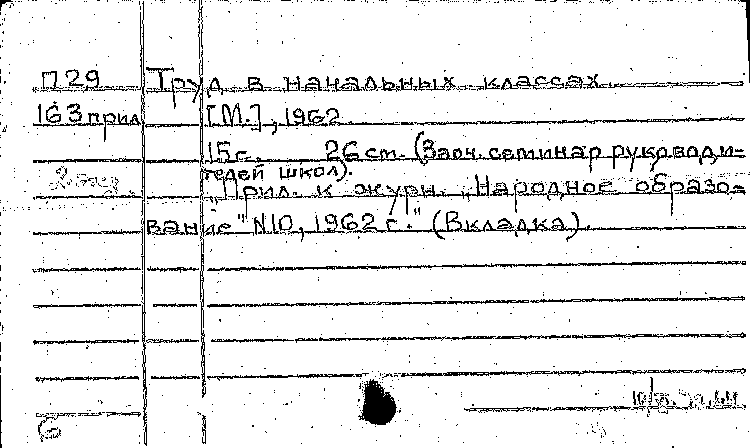 П29 Труд в начальных классах.
163 прил [М.], 1962
15 с. 26 см. (Заоч. семинар руководи-
телей школ).
2 экз.
"Прил. к журн. "Народное образо-
вание" N10, 1962 г." (Вкладка).
б